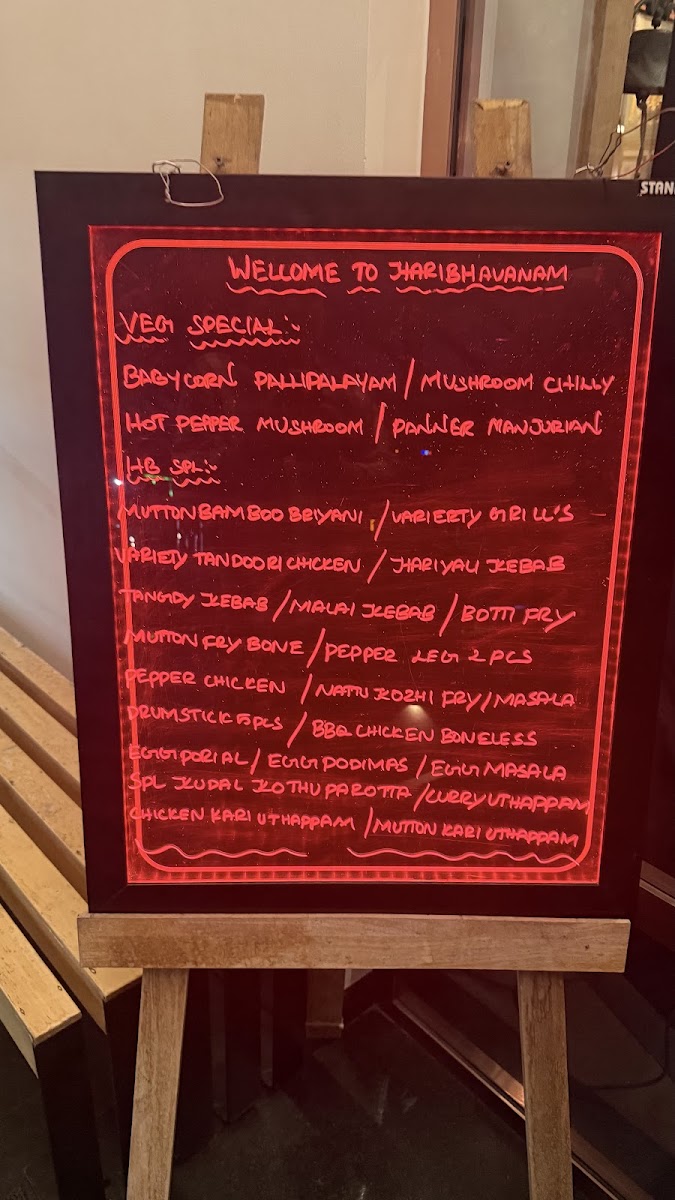 STAN
WELLOME TO HARIBHAVANAM
VEG SPECIAL:-
BABYCORN PALLIPALAYAM / MUSHROOM CHILLY
HOT PEPPER MUSHROOM / PANNER MANJURIAN
HB SPL:-
MUTTON BAMBOO BRIYANI / VARIERTY GRILL'S
VARIETY TANDOORI CHICKEN / HARIYALI KEBAB
TANGDY KEBAB / MALAI KEBAB / BOTTI FRY
MUTTON FRY BONE / PEPPER LEG 2 PCS
PEPPER CHICKEN / NATTU KOZHI FRY / MASALA
DRUMSTICK 5 PCS / BBQ CHICKEN BONELESS
EGG PORIAL / EGG PODIMAS / EGG MASALA
SPL KUDAL KOTHU PAROTTA / CURRY UTHAPPAM
CHICKEN KARI UTHAPPAM / MUTTON KARI UTHAPPAM